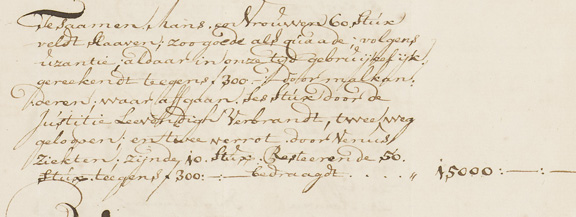 Tesaamen, Mans, en Vrouwen 60 Stux
veldt Slaaven; zoo goede als quaade volgens
uzantie aldaar in onze tijd gebruijkelijk
gereekendt teegens ƒ300:— door malkan:
deren; waar aff gaan, ses stux door de
Justitie Leevendigh Verbrandt, twee weg
geloopen; en twee verrot door Venus
Ziekten; zijnde 10. Stux. Resteerende 50.
Stux teegens ƒ300:— bedraagdt . . . . „ 15000:—:—